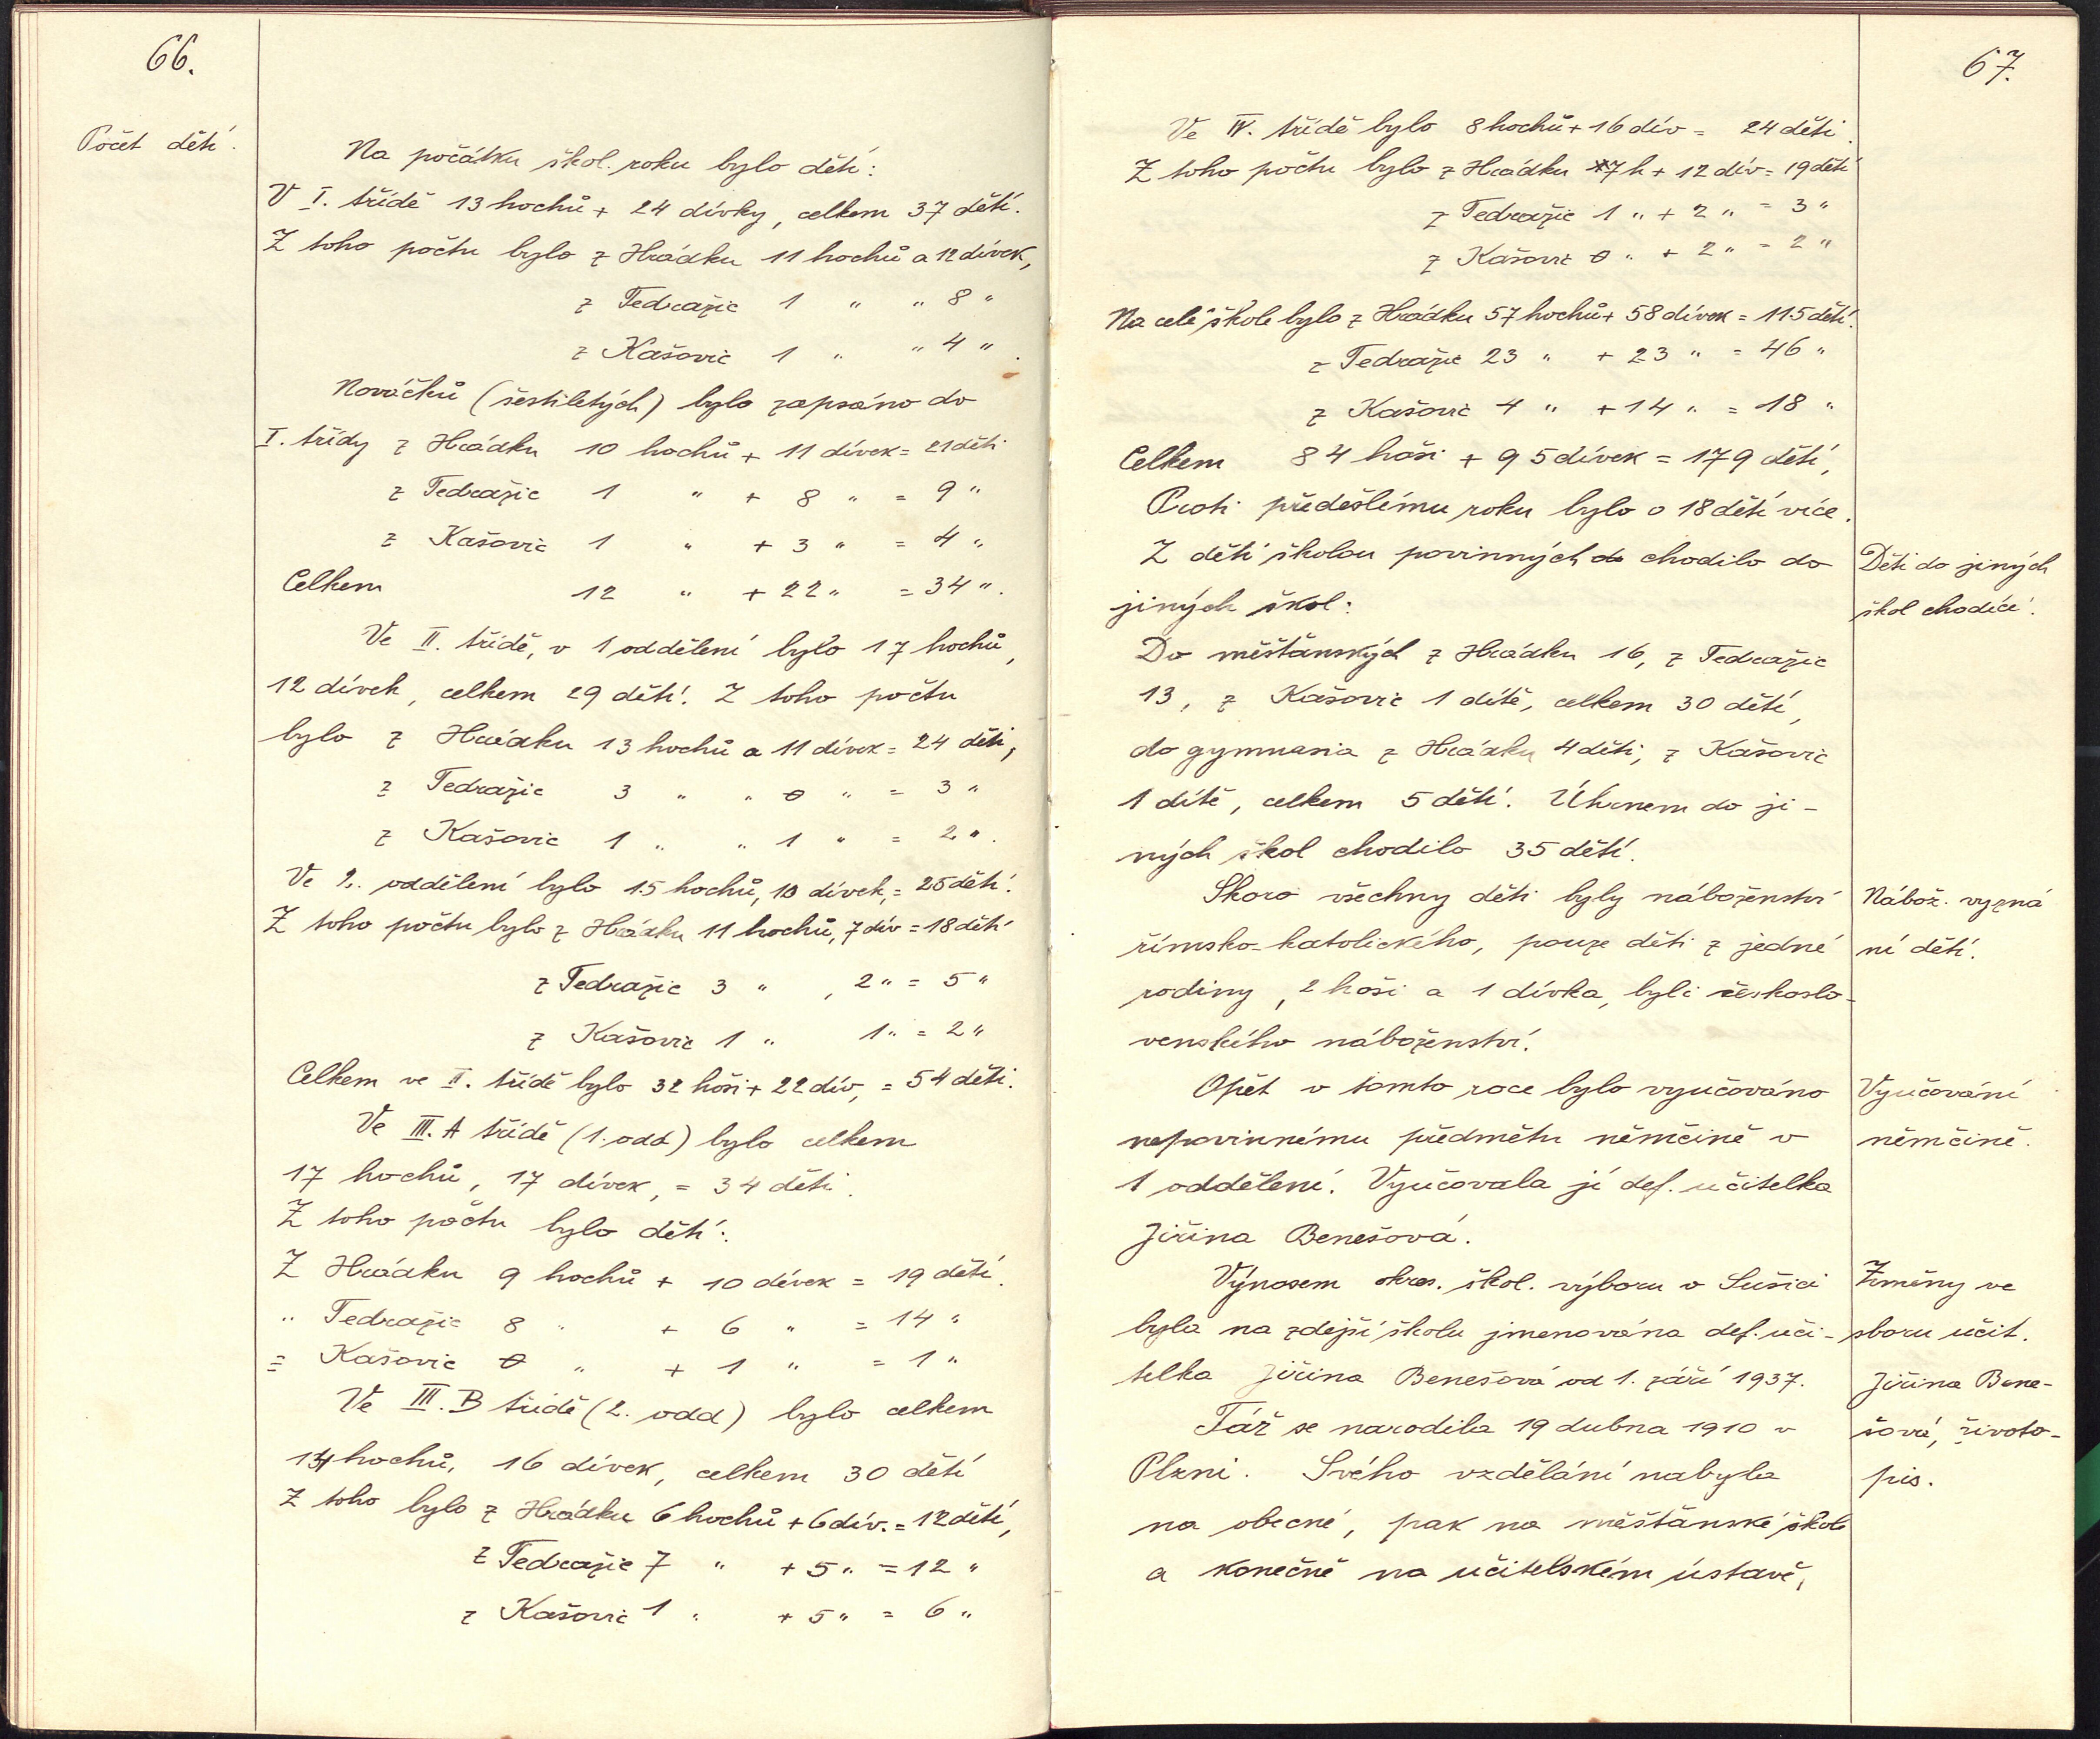 66.
Počet dětí.
Na počátku škol. roku bylo dětí:
V I. třídě 13 hochů + 24 dívky, celkem 37 dětí.
Z toho počtu bylo z Hrádku 11 hochů a 12 dívek,
z Tedražic 1 " " 8 "
z Kašovic 1 " " 4 ".
Nováčků (šestiletých) bylo zapsáno do
I. třídy z Hrádku 10 hochů + 11 dívek = 21 dětí
z Tedražic 1 " + 8 " = 9 "
z Kašovic 1 " + 3 " = 4 "
Celkem 12 " + 22 " = 34 ".
Ve II. třídě, v 1 oddělení bylo 17 hochů,
12 dívek, celkem 29 dětí. Z toho počtu
bylo z Hrádku 13 hochů a 11 dívek = 24 dětí,
z Tedražic 3 " " 0 " = 3 "
z Kašovic 1 " " 1 " = 2 ".
Ve 2. oddělení bylo 15 hochů, 10 dívek, = 25 dětí.
Z toho počtu bylo z Hrádku 11 hochů, 7 dív = 18 dětí
z Tedražic 3 " , 2 " = 5 "
z Kašovic 1 " 1 " = 2 "
Celkem ve II. třídě bylo 32 hoši + 22 dív, = 54 dětí.
Ve III. A třídě (1. odd) bylo celkem
17 hochů, 17 dívek, = 34 dětí.
Z toho počtu bylo dětí:
Z Hrádku 9 hochů + 10 dívek = 19 dětí.
" Tedražic 8 " + 6 " = 14 "
= Kašovic 0 " + 1 " = 1 "
Ve III. B třídě (2. odd) bylo celkem
14 hochů, 16 dívek, celkem 30 dětí
Z toho bylo z Hrádku 6 hochů + 6 dív. = 12 dětí,
z Tedražic 7 " + 5 " = 12 "
z Kašovic 1 " + 5 " = 6 "
67.
Ve IV. třídě bylo 8 hochů + 16 dív = 24 dětí.
Z toho počtu bylo z Hrádku 7 h + 12 dív = 19 dětí
z Tedražic 1 " + 2 " = 3 "
z Kašovic 0 " + 2 " = 2 "
Na celé škole bylo z Hrádku 57 hochů + 58 dívek = 115 dětí.
z Tedražic 23 " + 23 " = 46 "
z Kašovic 4 " + 14 " = 18 "
Celkem 84 hoši + 95 dívek = 179 dětí,
Proti předešlému roku bylo o 18 dětí více.
Z dětí školou povinných do chodilo do
jiných škol:
Děti do jiných
škol chodící.
Do měšťanských z Hrádku 16, z Tedražic
13, z Kašovic 1 dítě, celkem 30 dětí,
do gymnasia z Hrádku 4 děti, z Kašovic
1 dítě, celkem 5 dětí. Úhrnem do ji-
ných škol chodilo 35 dětí.
Skoro všechny děti byly náboženství
římsko-katolického, pouze děti z jedné
rodiny, 2 hoši a 1 dívka, byli českoslo-
venského náboženství.
Nábož. vyzná
ní dětí.
Opět v tomto roce bylo vyučováno
nepovinnému předmětu němčině v
1 oddělení. Vyučovala jí def. učitelka
Jiřina Benešová.
Vyučování
němčině.
Výnosem okres. škol. výboru v Sušici
byla na zdejší školu jmenována def. uči-
telka Jiřina Benešová od 1. září 1937.
Táž se narodila 19 dubna 1910 v
Plzni. Svého vzdělání nabyla
na obecné, pak na měšťanské škole
a konečně na učitelském ústavě,
Změny ve
sboru učit.
Jiřina Bene-
šová, životo-
pis.